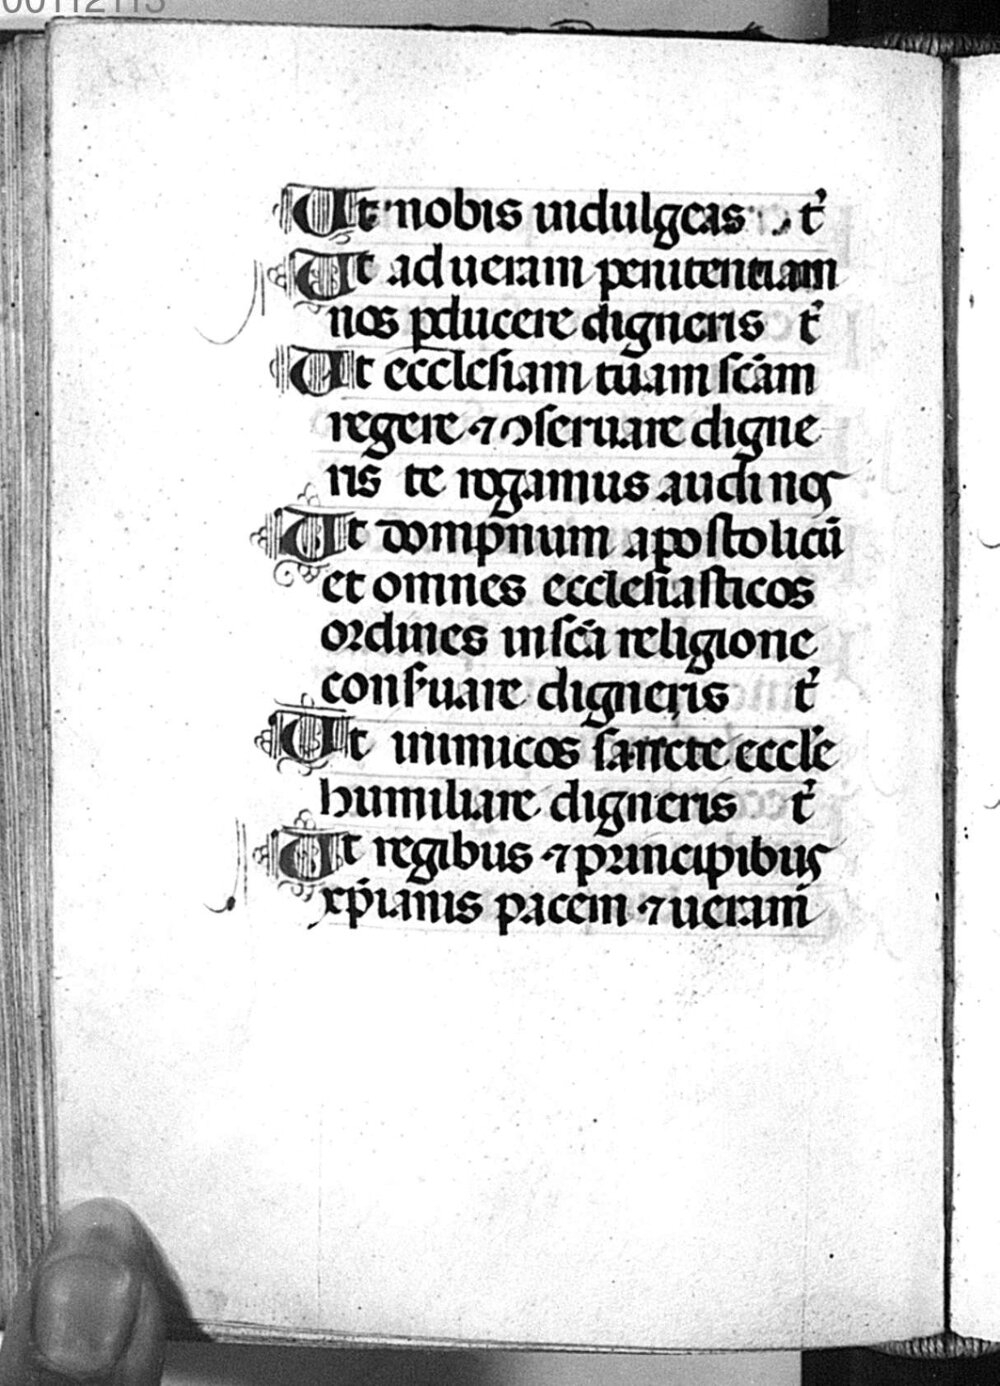 00112113
Ut nobis indulgeas t᷑
Ut ad ueram penitentiam
nos ꝑducere digneris t᷑
Ut ecclesiam tuam scām
regere ⁊ ꝯseruare digne
ris te rogamus audi nos
Ut dompnum apostolicū
et omnes ecclesiasticos
ordines in scā religione
cons̓uare digneris t᷑
Ut inimicos sancte eccl̓e
humiliare digneris t᷑
Ut regibus ⁊ principibus
xp̄ianis pacem ⁊ ueram